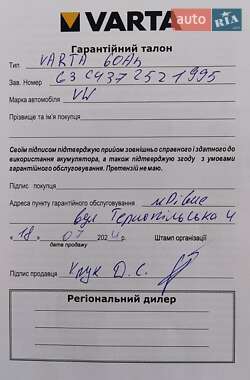 VARTA
AUTO RIA
Гарантійний талон
Тип VARTA 60Ah
Зав. Номер G3C4372521995
Марка автомобіля VW
Прізвище та ім'я покупця
Своїм підписом підтверджую прийом зовнішньо справного і здатного до
використання акумулятора, а також підтверджую згоду з умовами
гарантійного обслуговування. Претензій не маю.
Підпис покупця
Адреса пункту гарантійного обслуговування м Рівне
вул Тернопільська 4
"18" 07 2024 Штамп організації
дата продажу
Підпис продавця Крук Д.С.
Регіональний дилер